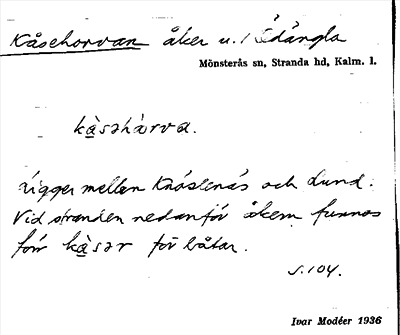 Kåsehorvan åker u. Ödångla
Mönsterås sn, Stranda hd, Kalm. l.
kà̱səhàrva.
Ligger mellan Knöslenäs och Lund.
Vid stranden nedanför åkern funnos
förr kà̱sər för båtar.
s. 104.
Ivar Modéer 1936